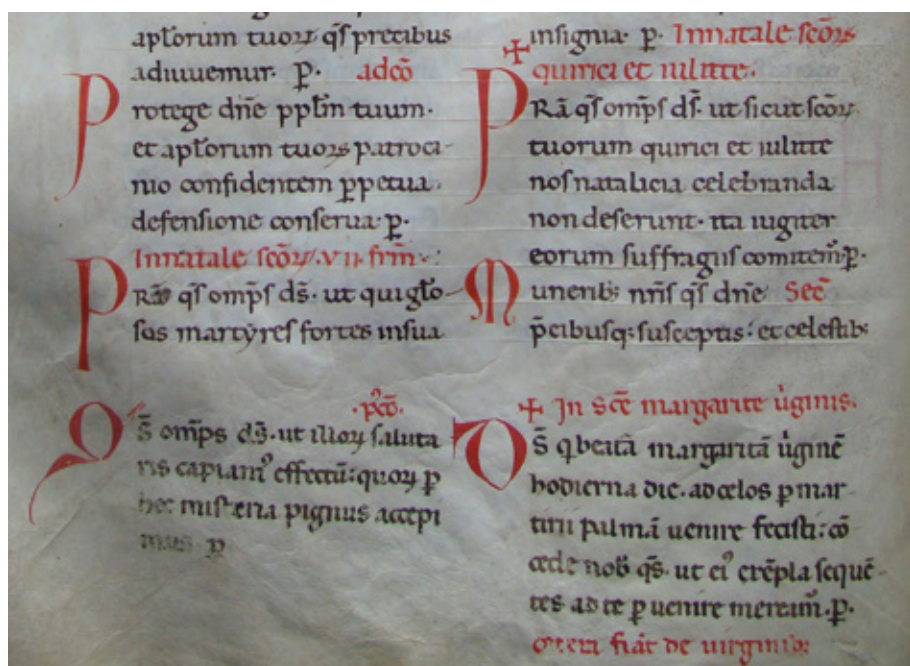 aptorum tuoꝝ qs̄ precibus
adiuuemur. p̱. adcō
Protege dn̄e pplm̄ tuum.
et aptorum tuoꝝ patroci-
nio confidentem ꝑpetua.
defensione conserua. p̱.
Innatale scōꝝ. vii. frm̄.
PRā qs̄ omp̄s ds̄. ut qui glo-
sos martyres fortes insua
.p̄cō.
Ds̄ omp̄s ds̄. ut illoꝝ saluta
ris capiamꝰ effectū: quoꝝ ꝑ
hec misteria pignus accepi
mus. p̱
insignia. p̱. Innatale scōꝝ
quirici et iulitte.
PRā qs̄ omp̄s ds̄. ut sicut scōꝝ
tuorum quirici et iulitte
nos natalicia celebranda
non deserunt. ita iugiter
eorum suffragiis comitemꝰ. p̱.
Munerib; nr̄is qs̄ dn̄e Sec̄
p̄cibusq; susceptis: et celestib;
+ In Sc̄e margarite ủginis.
Ds̄ q̇ beatā margaritā ủginē
hodierna die. ad celos ꝑ mar-
tirii palmā uenire fecisti: cō
cede nob̄ qs̄. ut eiꝰ exēpla sequē-
tes ad te ꝑuenire mereamꝰ. p̱.
Ceteri fiāt de uirginib;